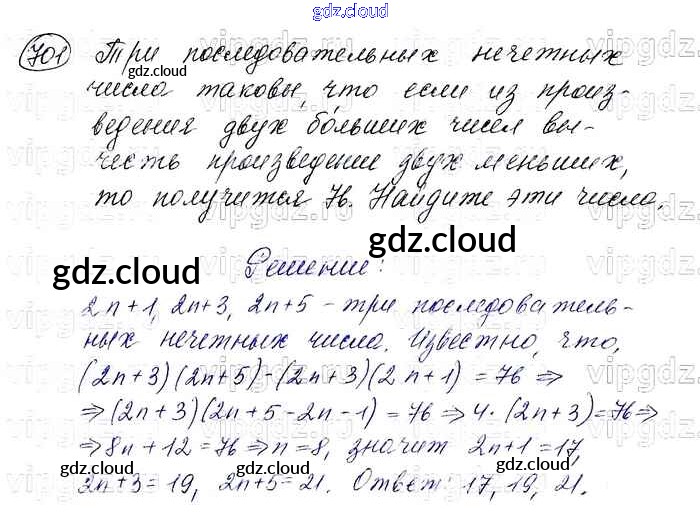 gdz.cloud
701 Три последовательных нечетных
числа таковы, что если из произ-
ведения двух бо́льших чисел вы-
честь произведение двух меньших,
то получится 76. Найдите эти числа.
Решение:
2n+1, 2n+3, 2n+5 - три последователь-
ных нечетных числа. Известно, что,
(2n+3)(2n+5)-(2n+3)(2n+1) = 76 ⇒
⇒ (2n+3)(2n+5-2n-1) = 76 ⇒ 4·(2n+3)=76 ⇒
⇒ 8n+12=76 ⇒ n=8, значит 2n+1=17,
2n+3=19, 2n+5=21. Ответ: 17, 19, 21.
gdz.cloud
gdz.cloud
gdz.cloud
gdz.cloud
gdz.cloud
gdz.cloud
gdz.cloud
gdz.cloud
gdz.cloud